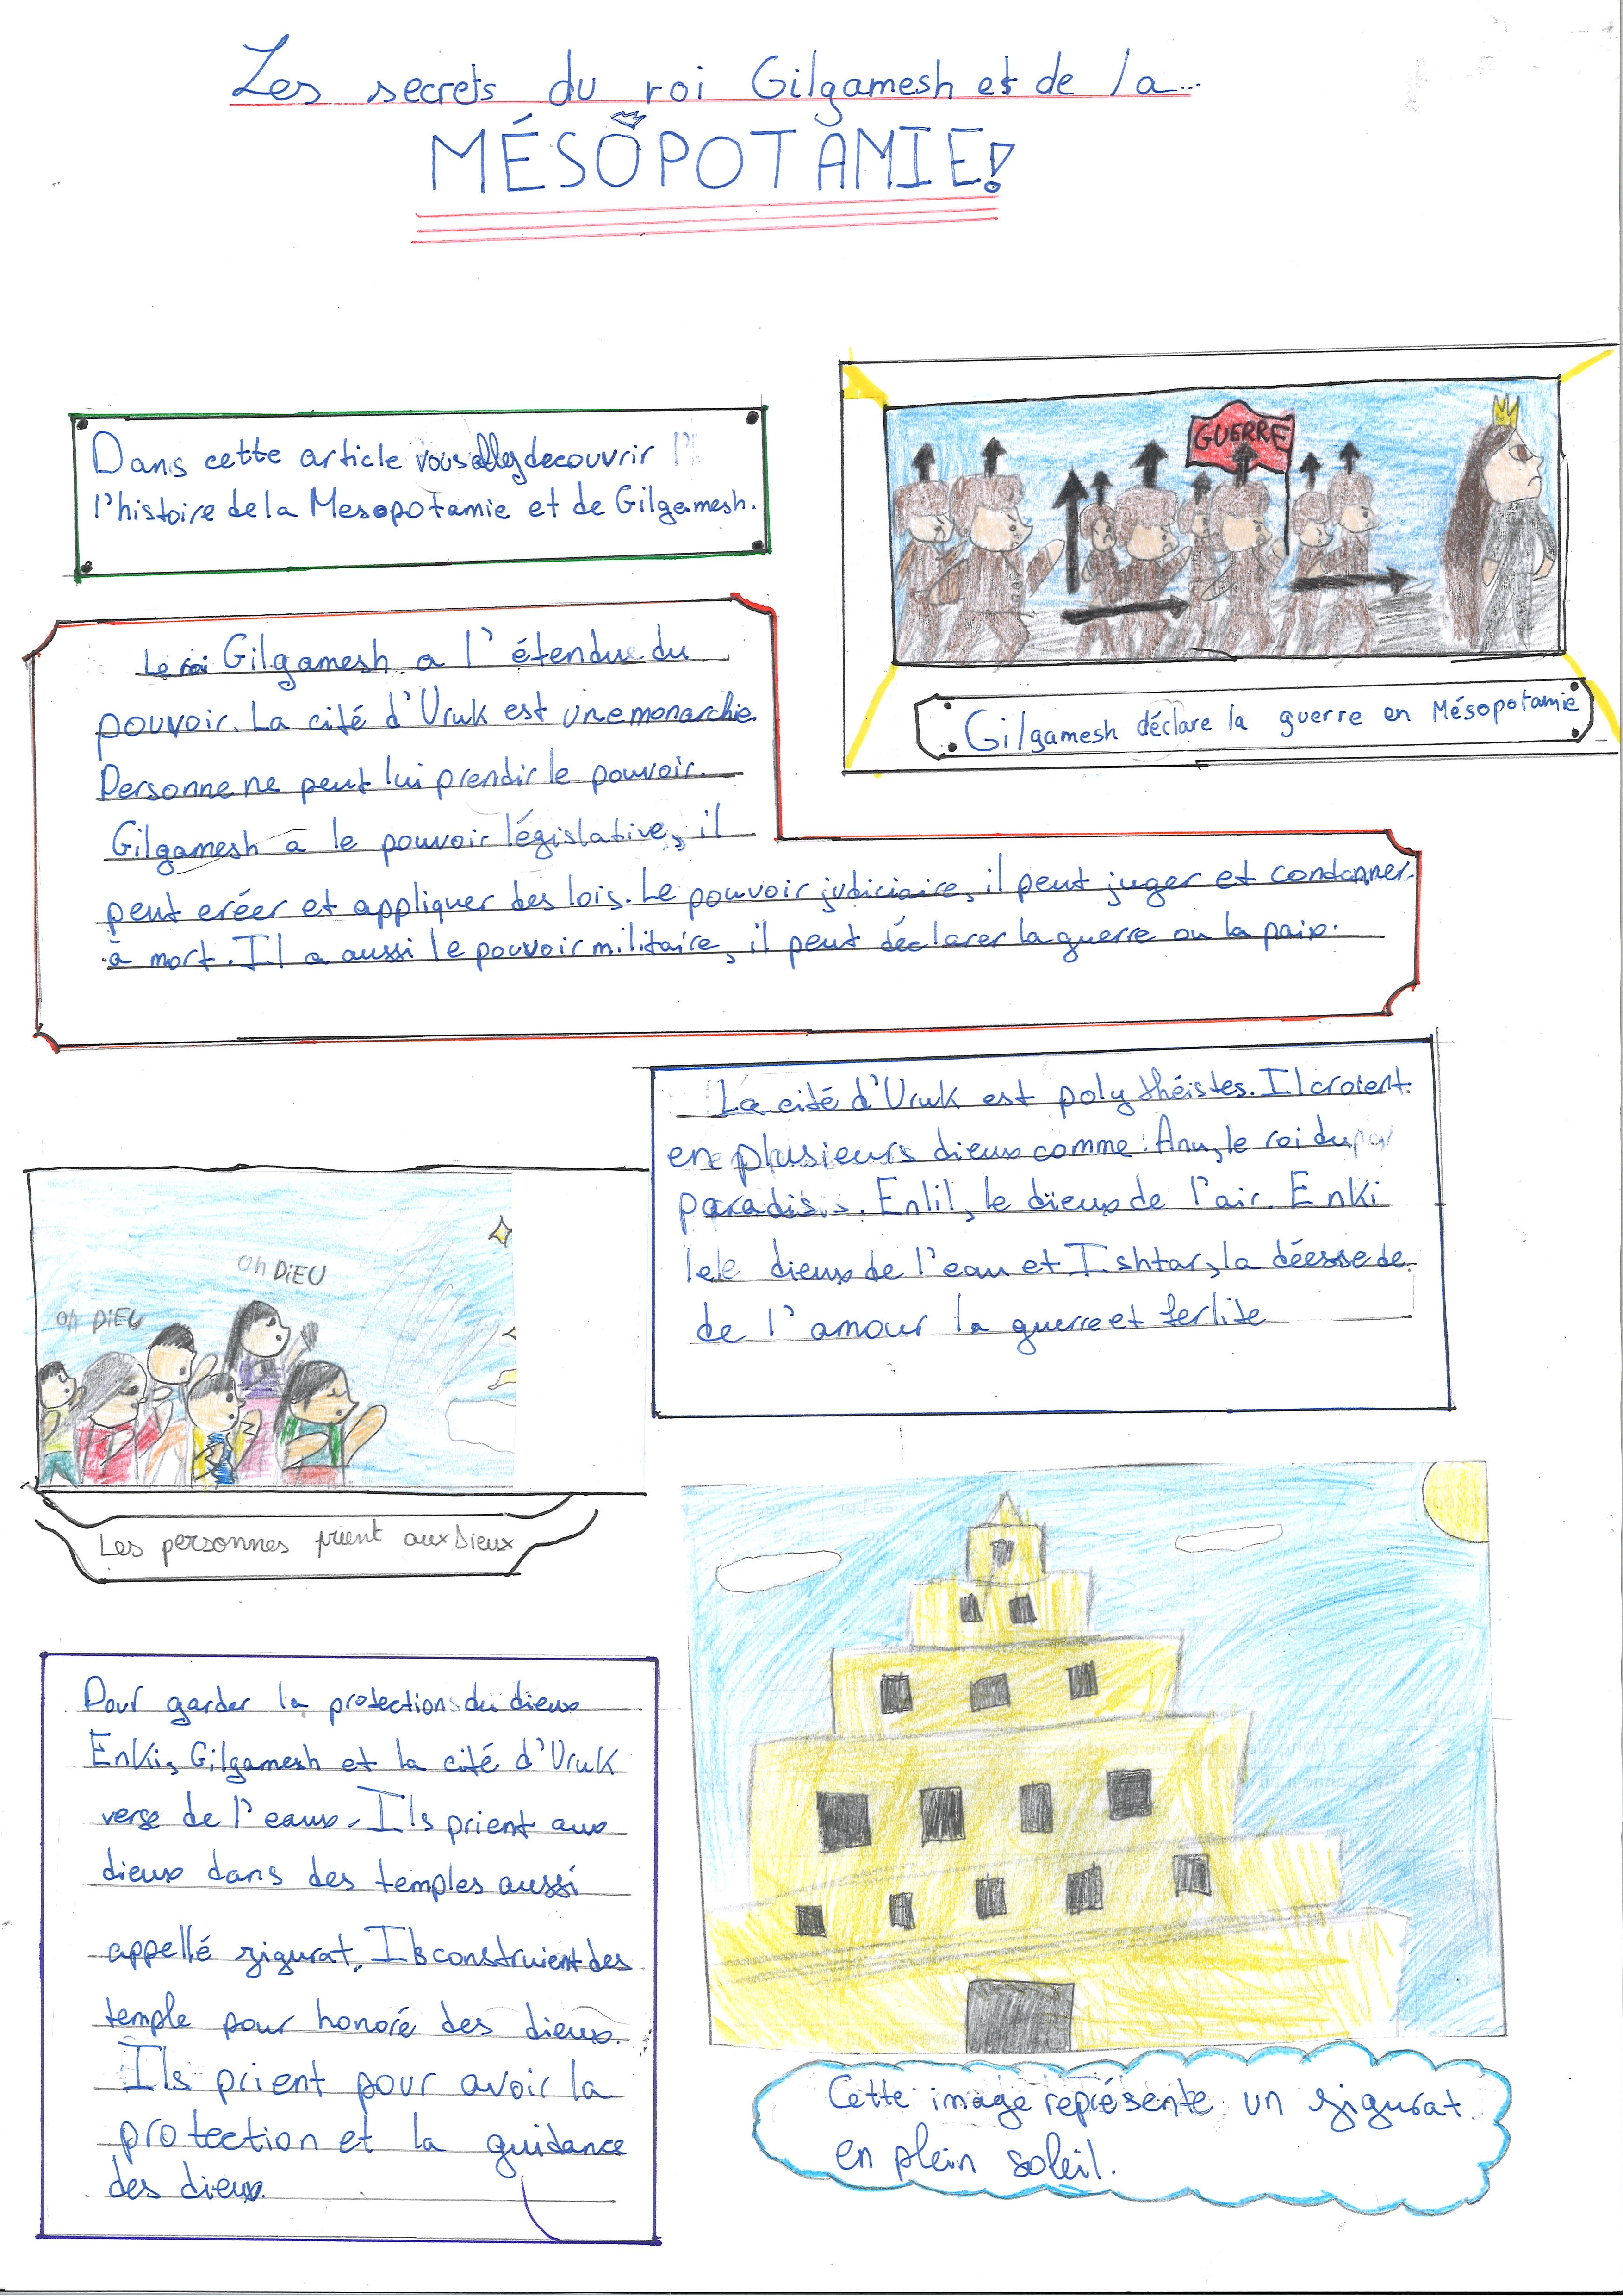 Les secrets du roi Gilgamesh et de la...
MÉSOPOTAMIE!
Dans cette article vous allez decouvrir
l'histoire de la Mesopotamie et de Gilgamesh.
GUERRE
Gilgamesh déclare la guerre en Mésopotamie
Le roi Gilgamesh a l'étendue du
pouvoir. La cité d'Uruk est une monarchie.
Personne ne peut lui prendir le pouvoir.
Gilgamesh a le pouvoir législative, il
peut créer et appliquer des lois. Le pouvoir judiciaire, il peut juger et condanner
à mort. Il a aussi le pouvoir militaire, il peut déclarer la guerre ou la paix.
La cité d'Uruk est polythéistes. Il croient
en plusieurs dieux comme : Anu, le roi du
paradis. Enlil, le dieux de l'air. Enki
le dieux de l'eau et Ishtar, la déesse de
de l'amour la guerre et ferlite
Oh DIEU
Oh DIEU
Les personnes prient aux Dieux
Pour garder la protection du dieux
Enki, Gilgamesh et la cité d'Uruk
verse de l'eaux. Ils prient aux
dieux dans des temples aussi
appellé zigurat. Ils construient des
temple pour honoré des dieux.
Ils prient pour avoir la
protection et la guidance
des dieux.
Cette image représente un zigurat
en plein soleil.